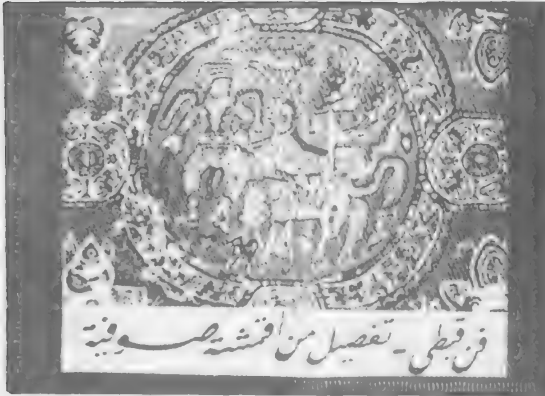 فن قبطي - تفصيل من اقمشة صوفية